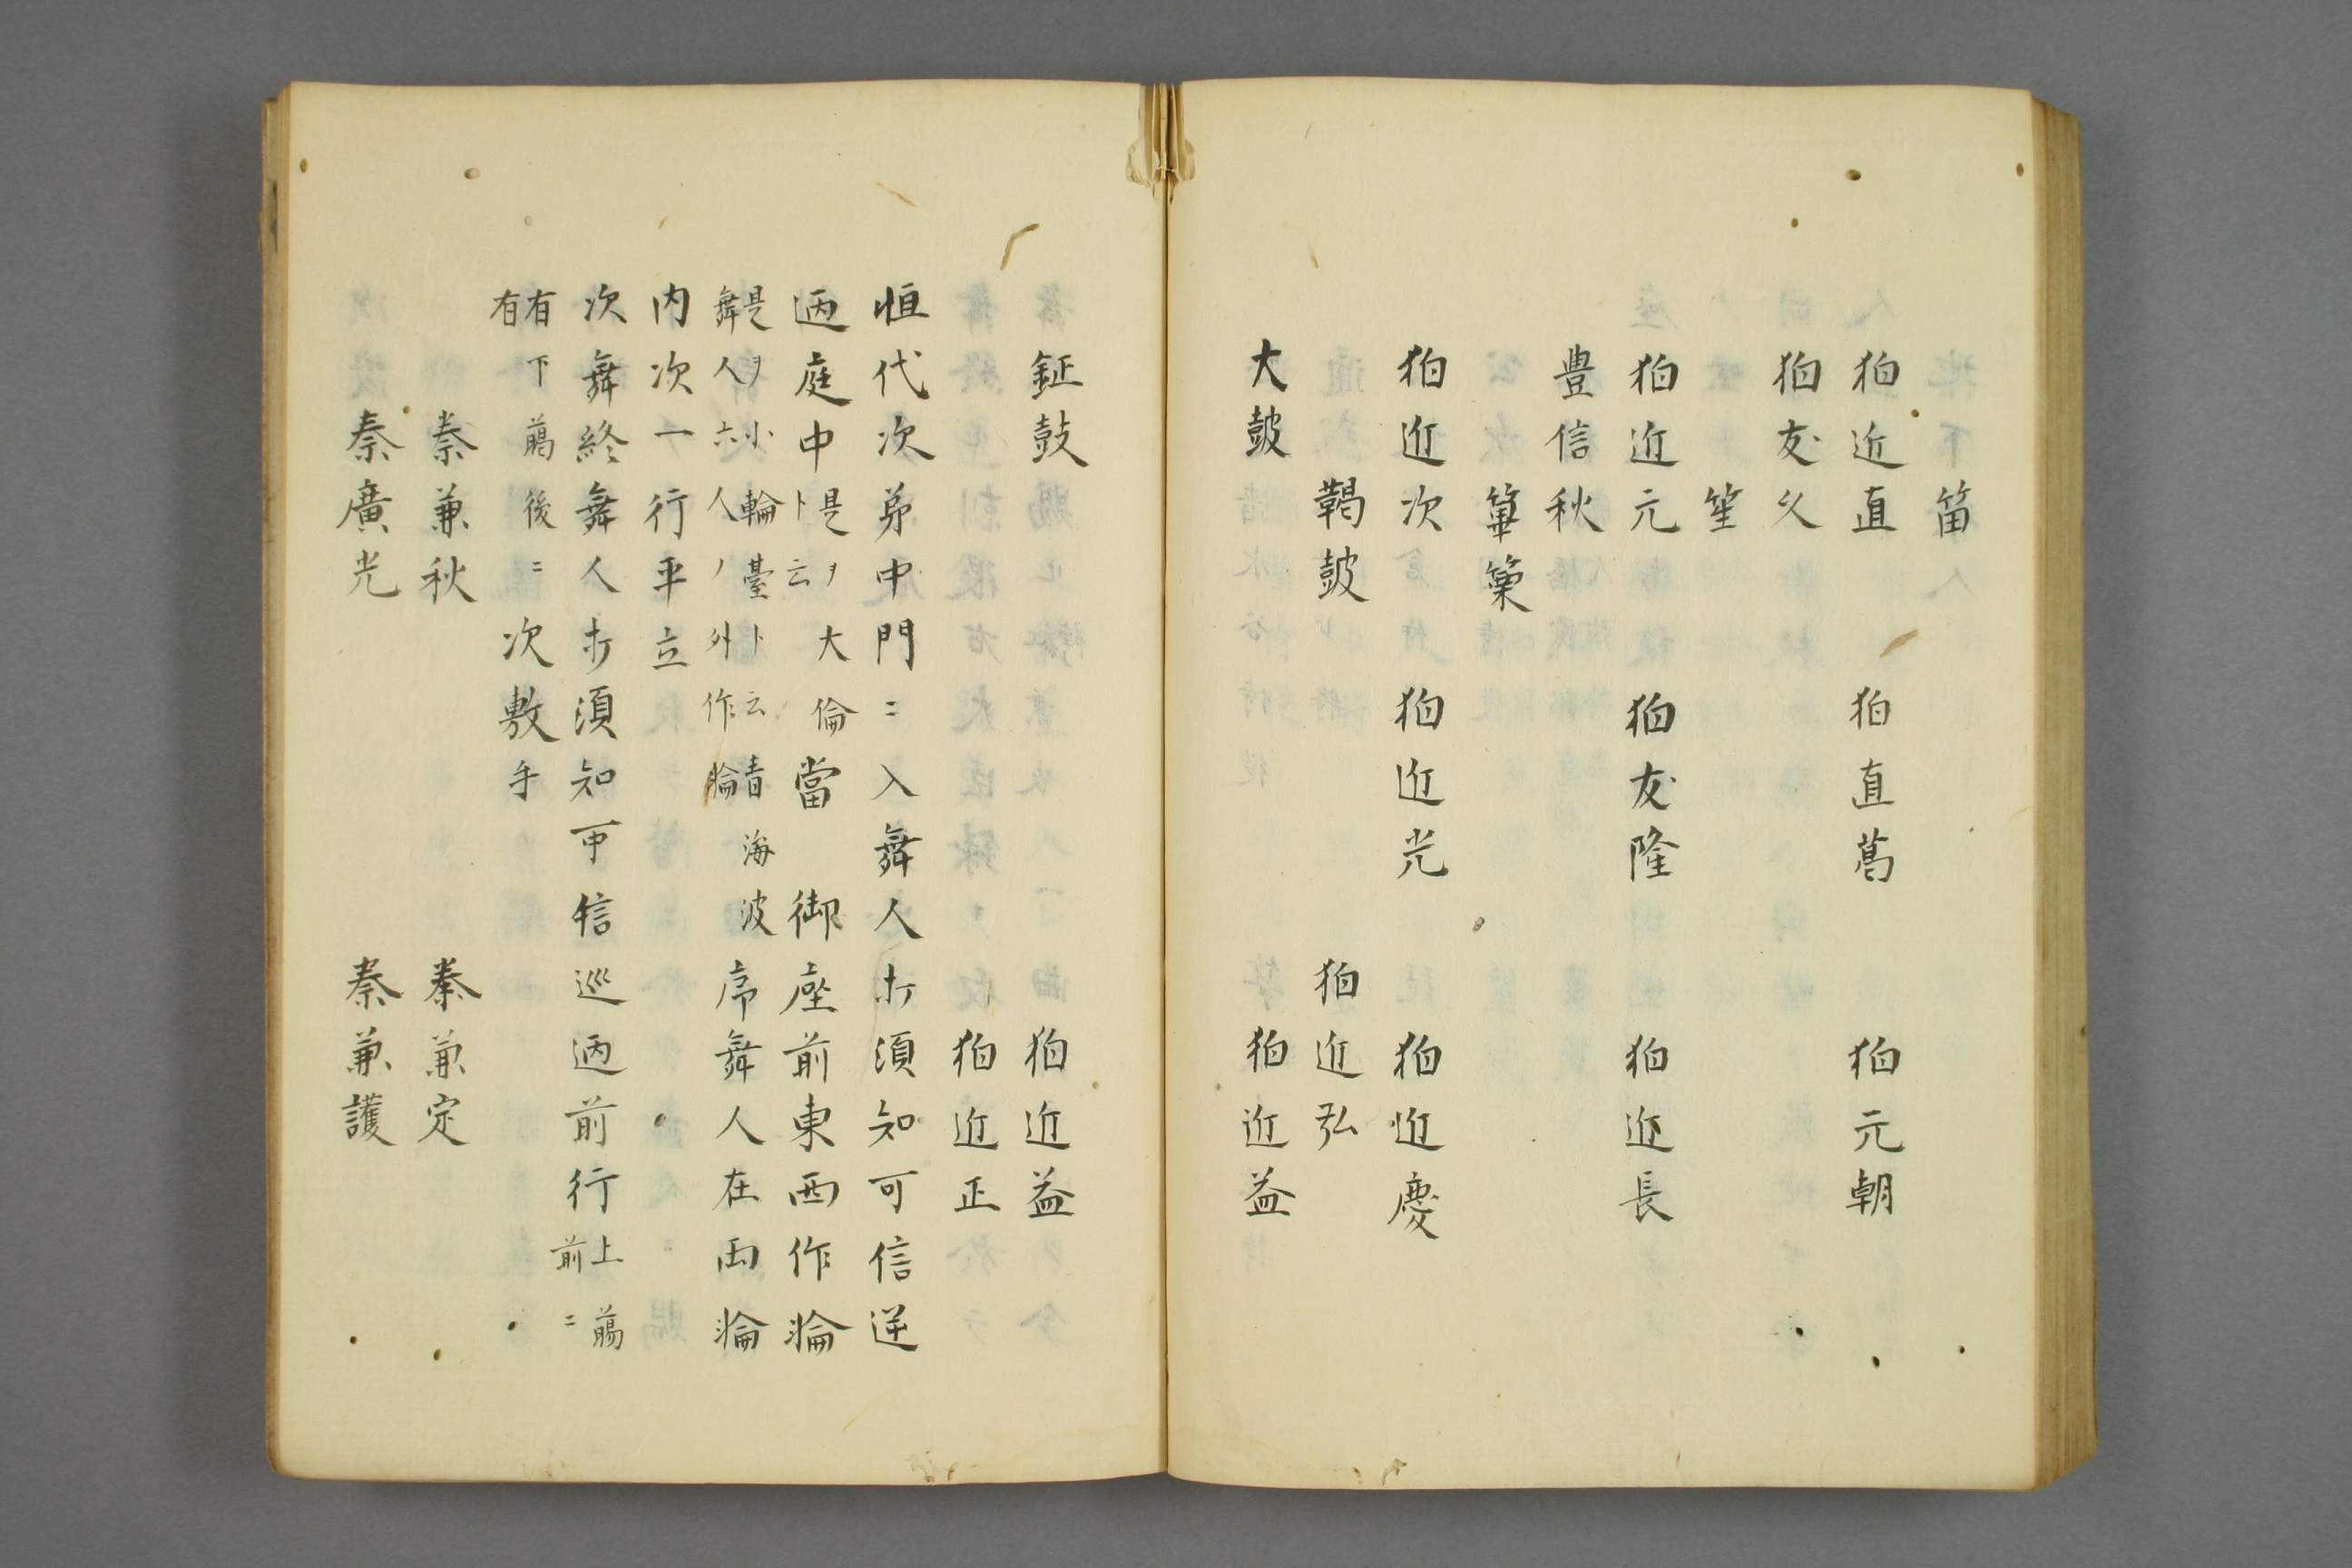 笛
狛近直　狛直葛　狛元朝
狛友久
笙
狛近元　狛友隆　狛近長
豊信秋
篳篥
狛近次　狛近光　狛近慶
鞨皷　狛近弘
大皷　狛近益
鉦鼓　狛近益
狛近正
恒代次苐中門ニ入舞人打須知可信迊
迊庭中是ヲ大倫
ト云當　御座前東西作淪
是ヲ小輪臺ト云青海波
舞人六人ノ外作淪序舞人在両淪
内次一行平立
次舞終舞人打須知可信巡迊前行上﨟
前ニ
有下﨟後ニ
有次敷手
秦兼秋　秦兼定
秦廣光　秦兼護